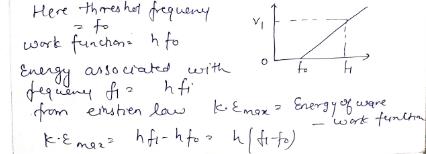 Here threshol frequeny
= fo
work function = hfo
Energy associated with
frequeny f1 = hf1
from einstien law K.Emax = Energy of wave
- work function
K.Emax = hf1 - hfo = h(f1-fo)
V1
0
fo
f1